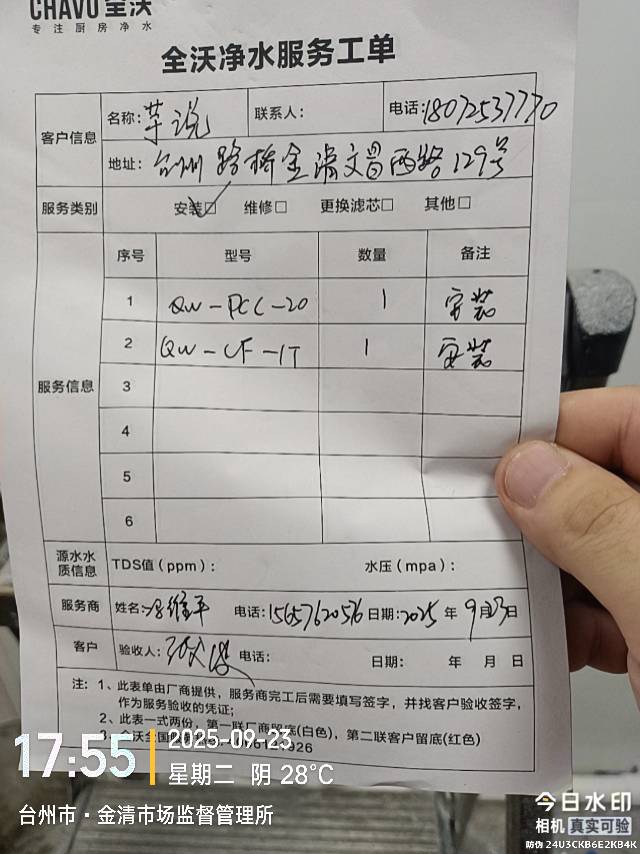 CHAVO 全沃
专注厨房净水
全沃净水服务工单
客户信息
名称: 联系人: 电话:18072537770
地址: 台州路桥金清文昌西路129号
服务类别 安装☑ 维修□ 更换滤芯□ 其他□
服务信息
序号 型号 数量 备注
1 QW-PCC-20 1 安装
2 QW-UF-1T 1 安装
3
4
5
6
源水水质信息 TDS值（ppm）: 水压（mpa）:
服务商 姓名: 电话:15657620516 日期:2025年9月23日
客户 验收人: 电话: 日期: 年 月 日
注: 1、此表单由厂商提供，服务商完工后需要填写签字，并找客户验收签字，
作为服务验收的凭证;
2、此表一式两份，第一联厂商留底(白色)，第二联客户留底(红色)
17:55 2025-09-23
星期二 阴 28°C
台州市·金清市场监督管理所
今日水印
相机 真实可验
防伪 24U3CKB6E2KB4K